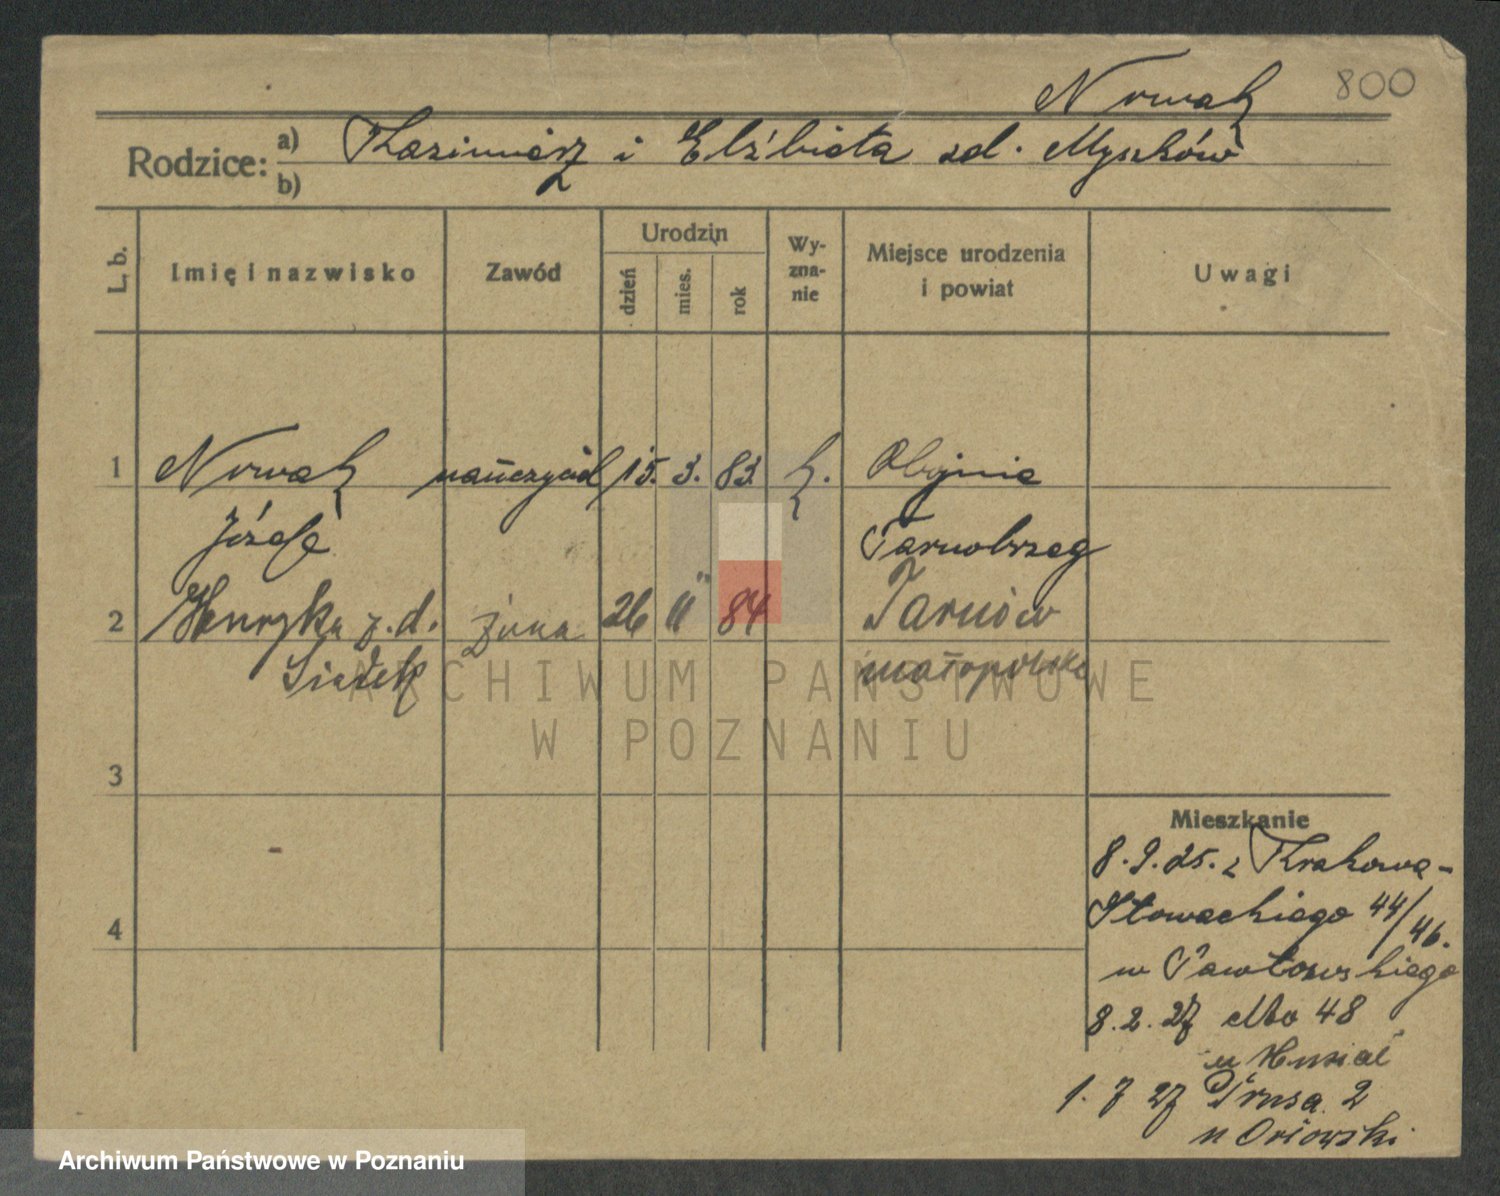 Nowak 800
Rodzice: a) Kazimierz i Elżbieta zd. Myszków
b)
L. b. Imię i nazwisko Zawód Urodzin dzień mies. rok Wy-zna-nie Miejsce urodzenia i powiat Uwagi
1 Nowak nauczyciel 15. 3. 83. k.
Józef Tarnobrzeg
2 Henryka z. d. żona 26 11 84 Tarnów
małopolska
ARCHIWUM PAŃSTWOWE
W POZNANIU
3
Mieszkanie
8.9.25. z Krakowa-
Słowackiego 44/46.
4
u Pawłowskiego
8.2.27 48
u Musiał
1.7 27 Prusa 2
u Orłowski
Archiwum Państwowe w Poznaniu